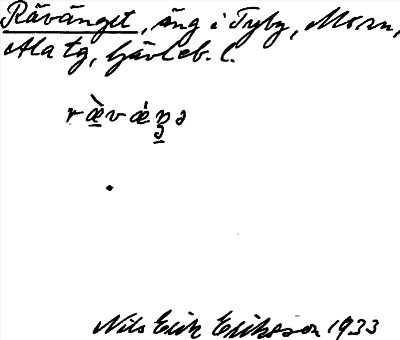 Rävänget, äng i Tyby, Morn,
Ala tg, Gävleb. l.
ræ̀vǽŋə
Nils Erik Eriksson 1933